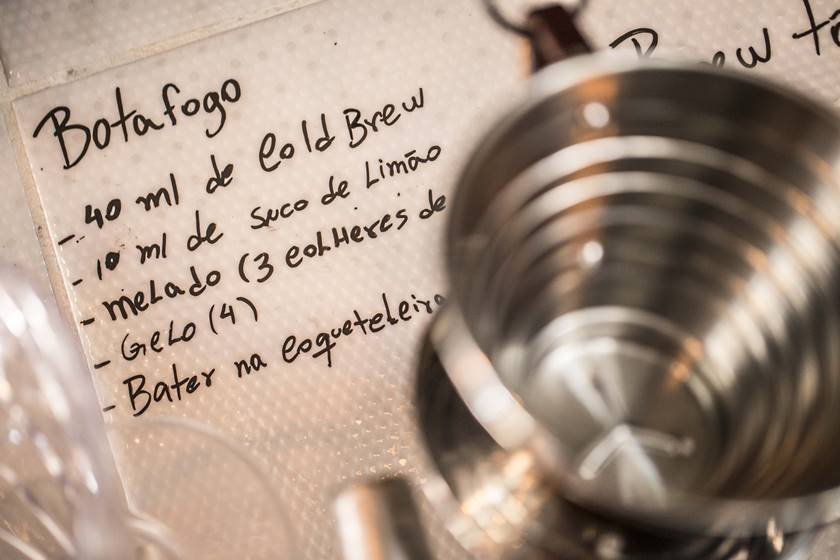 Botafogo
- 40 ml de Cold Brew
- 10 ml de suco de Limão
- melado (3 colheres de
- Gelo (4)
- Bater na coqueteleira